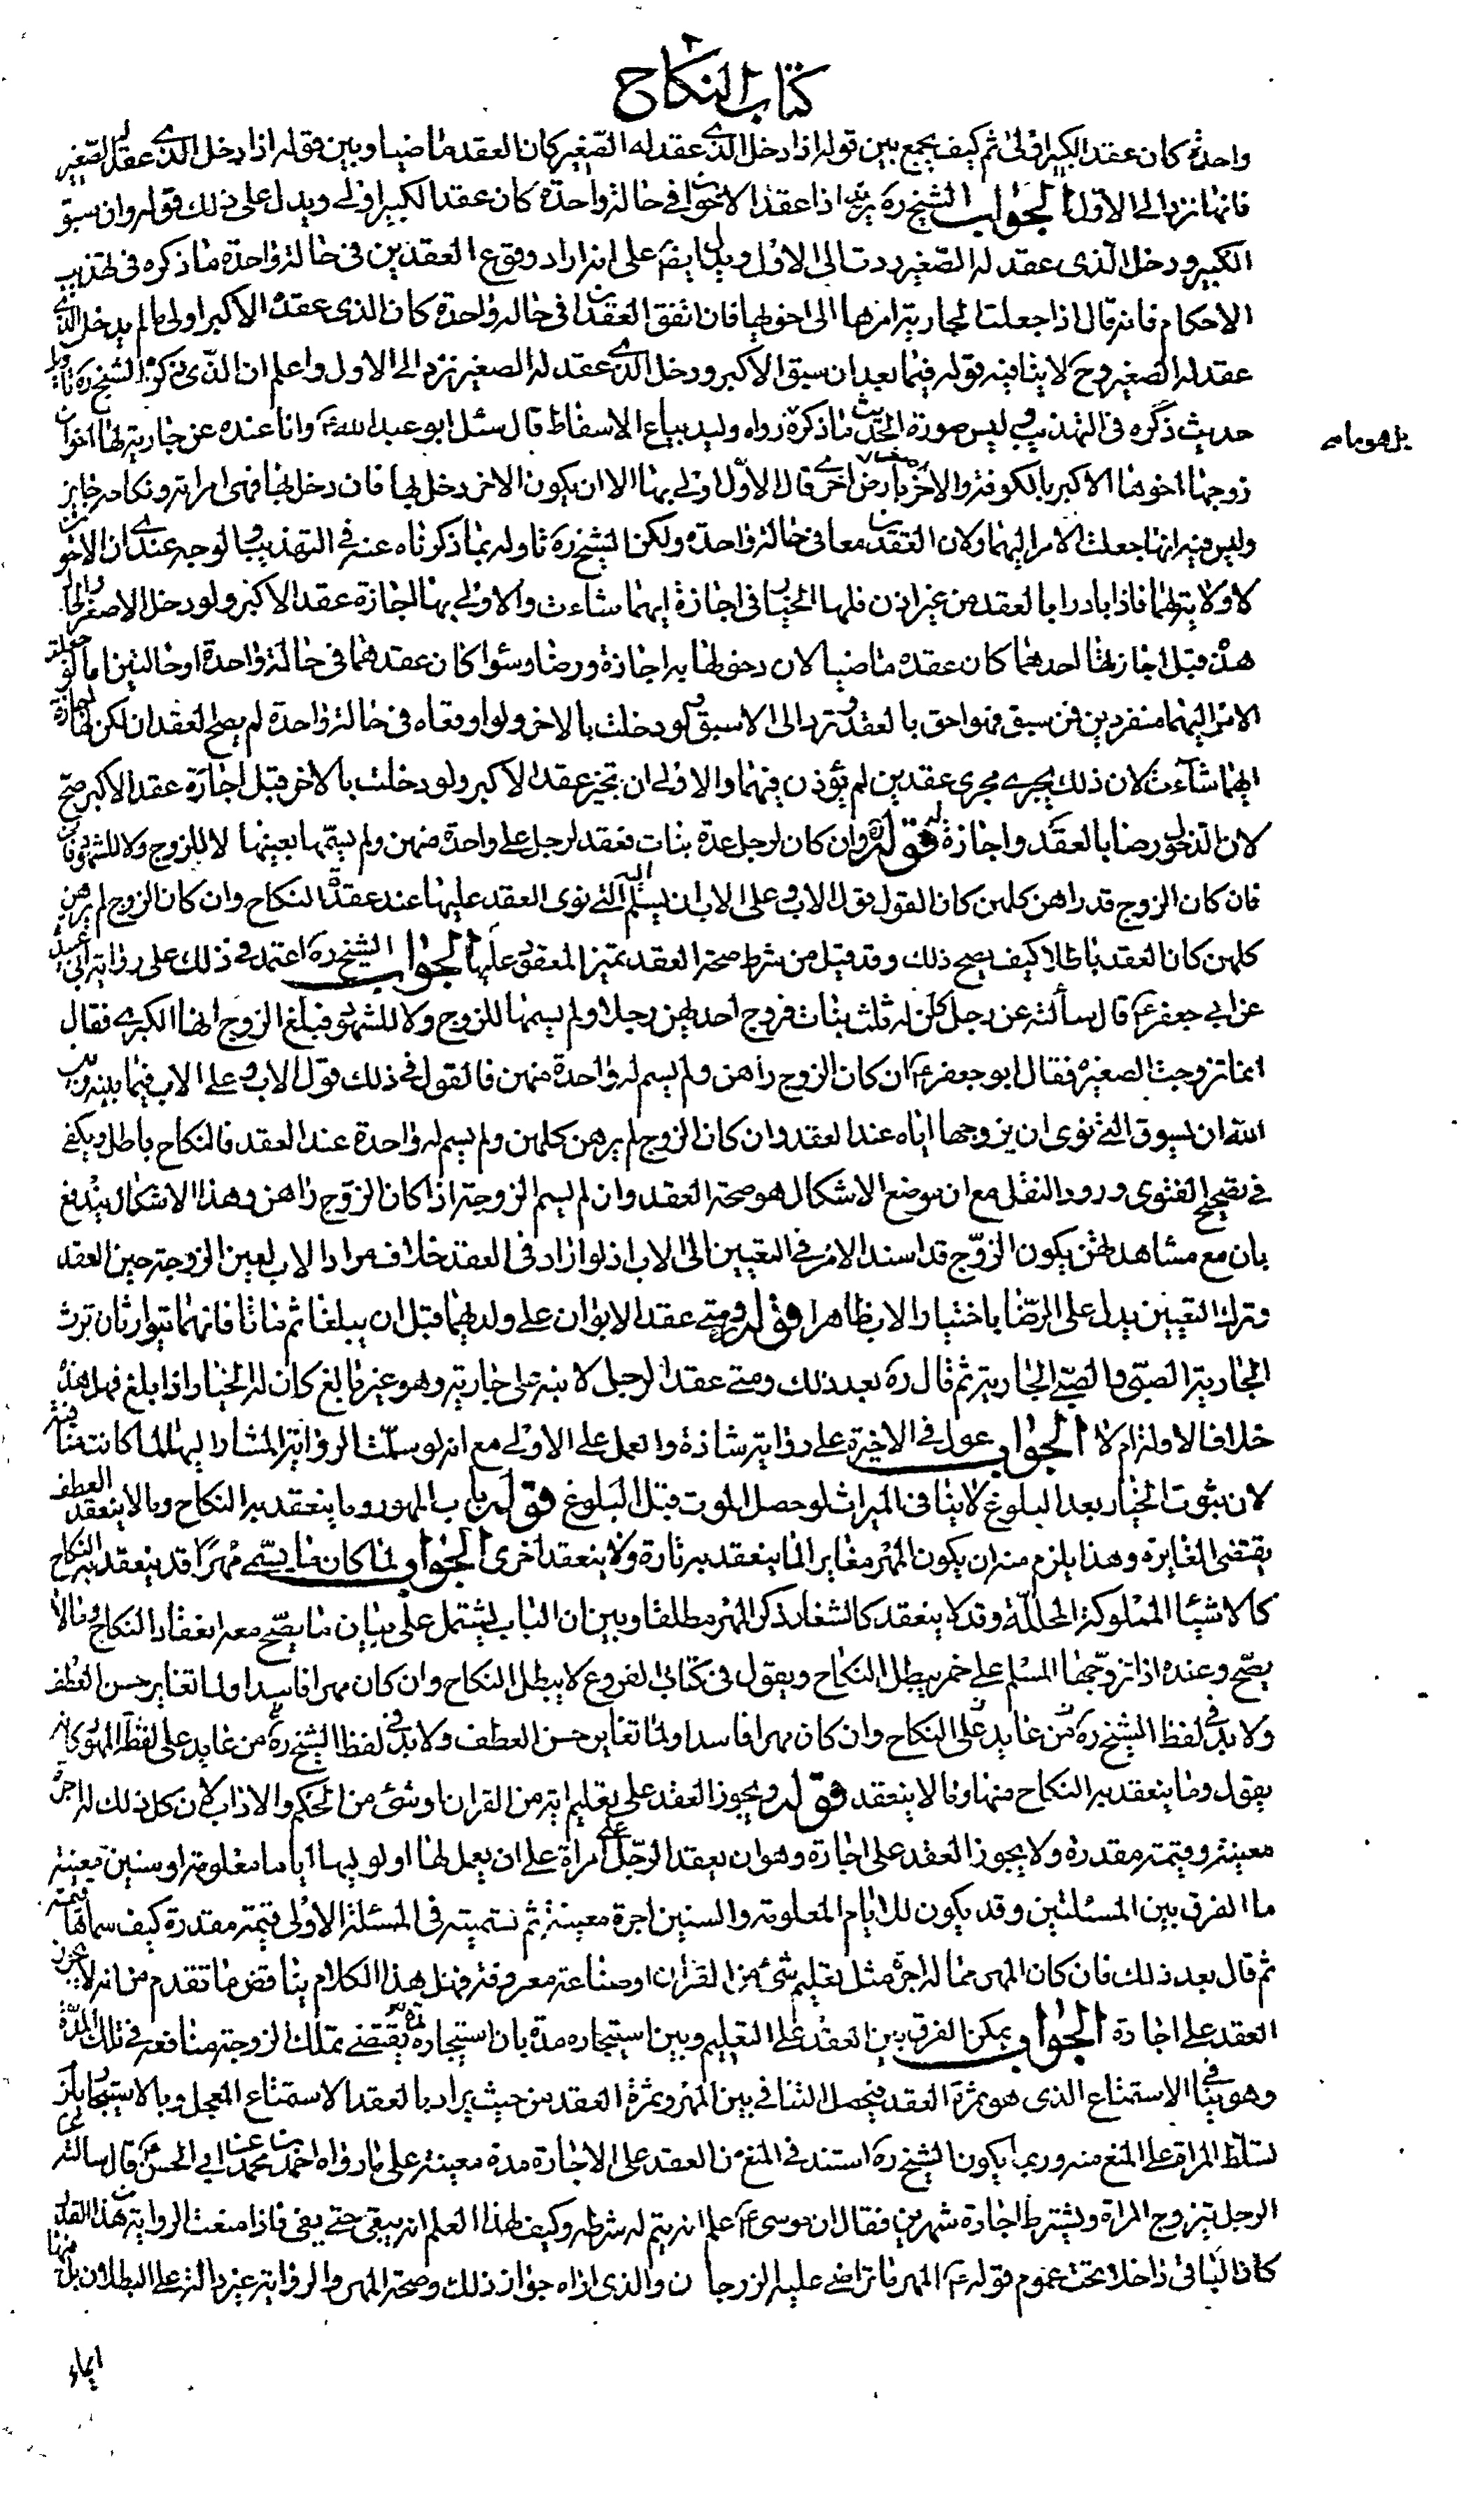 كتاب النكاح
واحدة كان عقد الكبير اولى ثم كيف يجمع بين قوله اذا دخل الذى عقد له الصغير كان العقد ماضيا وبين قوله اذا دخل الذى عقد له الصغير
فانها ترد الى الاول الجواب الشيخ ره يريد اذا عقد الاخوان في حالة واحدة كان عقد الكبير اولى ويدل على ذلك قوله وان سبق
الكبير ودخل الذى عقد له الصغير ردت الى الاول ويدل ايضا على انه اراد وقوع العقدين في حالة واحدة ما ذكره في تهذيب
الاحكام فانه قال اذا جعلت الجارية امرها الى اخويها فان اتفق العقدان في حالة واحدة كان الذى عقده الاكبر اولى ما لم يدخل الذى
عقد له الصغير وح لا ينافيه قوله فيما بعد ان سبق الاكبر ودخل الذى عقد له الصغير ترد الى الاول واعلم ان الذى ذكره الشيخ ره تاويل
حديث ذكره في التهذيب وليس صورة الحديث ما ذكره رواه وليد بياع الاسفاط قال سئل ابو عبد الله ع وانا عنده عن جارية لها اخوان
زوجها اخوها الاكبر بالكوفة والاخر بارض اخرى قال الاول اولى بها الا ان يكون الاخر دخل بها فان دخل بها فهى امراته ونكاحه جايز
وليس فيه انها جعلت الامر اليهما ولا ان العقدين معا في حالة واحدة ولكن الشيخ ره تاوله بما ذكرناه عنه في التهذيب والوجه عندى ان الاخوين
لا ولاية لهما فاذا بادرا بالعقد من غير اذن فلها الخيار في اجازة ايهما شاءت والاولى بها اجازة عقد الاكبر ولو دخل الاصغر والحال
هذه قبل اجازتها احدهما كان عقده ماضيا لان دخولها به اجازة ورضا وسواء كان عقدهما في حالة واحدة او حالتين اما لو جعلت
الامر اليهما منفردين فمن سبق فهو احق بالعقد وترد الى الاسبق ولو دخلت بالاخر ولو اوقعاه في حالة واحدة لم يصح العقدان لكن لها اجازة
ايهما شاءت لان ذلك يجرى مجرى عقدين لم يؤذن فيهما والاولى ان تجيز عقد الاكبر ولو دخلت بالاخر قبل اجازة عقد الاكبر صح
لان الدخول رضا بالعقد واجازة له قوله وان كان لرجل عدة بنات فعقد لرجل على واحدة منهن ولم يسمها بعينها لا للزوج ولا للشهود
فان كان الزوج قد راهن كلهن كان القول قول الاب وعلى الاب ان يسلم اليه التى نوى العقد عليها عند عقدة النكاح وان كان الزوج لم يرهن
كلهن كان العقد باطلا كيف يصح ذلك وقد قيل من شرط صحة العقد تميز المعقود عليها الجواب الشيخ ره اعتمد في ذلك على رواية ابى عبيدة
عن ابى جعفر ع قال سألته عن رجل كن له ثلث بنات فزوج احديهن رجلا ولم يسمها للزوج ولا للشهود فبلغ الزوج انها الكبرى فقال
انما تزوجت الصغيرة فقال ابو جعفر ع ان كان الزوج راهن ولم يسم له واحدة منهن فالقول في ذلك قول الاب وعلى الاب فيما بينه وبين
الله ان يسوق التى نوى ان يزوجها اياه عند العقد وان كان الزوج لم يرهن كلهن ولم يسم له واحدة عند العقد فالنكاح باطل ويكفى
في تصحيح الفتوى ورود النقل مع ان موضع الاشكال هو صحة العقد وان لم يسم الزوجة اذا كان الزوج راهن وهذا الاشكال يندفع
بان مع مشاهدتهن يكون الزوج قد اسند الامر في التعيين الى الاب اذ لو اراد في العقد خلاف مراد الاب لعين الزوجة حين العقد
وترك التعيين يدل على الرضا باختيار الاب ظاهرا قوله ومتى عقد الابوان على ولديهما قبل ان يبلغا ثم ماتا فانهما يتوارثان ترث
الجارية الصبى والصبى الجارية ثم قال ره بعد ذلك ومتى عقد الرجل لابنه على جارية وهو غير بالغ كان له الخيار اذا بلغ فهل هذه
خلاف الاولة ام لا الجواب عول في الاخيرة على رواية شاذة والعمل على الاولى مع انه لو سلمت الرواية المشار اليها لما كانت منافية
لان ثبوت الخيار بعد البلوغ لا ينافى الميراث لو حصل الموت قبل البلوغ قوله باب المهور وما ينعقد به النكاح وما لا ينعقد العطف
يقتضى المغايرة وهذا يلزم منه ان يكون المهر مغايرا لما ينعقد به تارة ولا ينعقد اخرى الجواب لما كان ما يسمى مهرا قد ينعقد به النكاح
كالاشياء المملوكة المحللة وقد لا ينعقد كالشغار ذكر المهر مطلقا وبين ان الباب يشتمل على بيان ما يصح معه انعقاد النكاح وما لا
يصح وعنده اذا تزوجها المسلم على خمر يبطل النكاح ويقول في كتابى الفروع لا يبطل النكاح وان كان مهرا فاسدا ولما تغاير حسن العطف
ولا بد في لفظ الشيخ ره من عايد على النكاح وان كان مهرا فاسدا ولما تغاير حسن العطف ولا بد في لفظ الشيخ ره من عايد على لفظة المهور كانه
يقول وما ينعقد به النكاح منها وما لا ينعقد قوله ويجوز العقد على تعليم اية من القران او شىء من الحكم والاداب لان كل ذلك له اجرة
معينة وقيمة مقدرة ولا يجوز العقد على اجارة وهو ان يعقد الرجل على امراة على ان يعمل لها او لوليها اياما معلومة او سنين معينة
ما الفرق بين المسئلتين وقد يكون للايام المعلومة والسنين اجرة معينة ثم تسميته في المسئلة الاولى قيمة مقدرة كيف سماها قيمة
ثم قال بعد ذلك فان كان المهر مما له اجرة مثل تعليم شىء من القران او صناعة معروفة فهل هذا الكلام يناقض ما تقدم من انه لا يجوز
العقد على اجارة الجواب يمكن الفرق بين العقد على التعليم وبين استيجاره مدة بان استيجاره مدة يقتضى تملك الزوجة منافعه في تلك المدة
وهو ينافى الاستمتاع الذى هو ثمرة العقد فيحصل التنافى بين المهر وثمرة العقد من حيث يراد بالعقد الاستمتاع المعجل وبالاستيجار يلزم
تسلط المراة على المنع منه وربما يكون الشيخ ره استند في المنع من العقد على الاجارة مدة معينة على ما رواه احمد بن محمد عن ابى الحسن ع قال سالته عن
الرجل يتزوج المراة ويشترط اجارة شهرين فقال ان موسى ع علم انه يتم له شرطه وكيف لهذا العلم انه يبقى حتى يفى فاذا منعت الرواية هذا القدر
كان الباقى داخلا تحت عموم قوله ع المهر ما تراضى عليه الزوجان والذى اراه جواز ذلك وصحة المهر والرواية غير دالة على البطلان بل فيها
ايماء